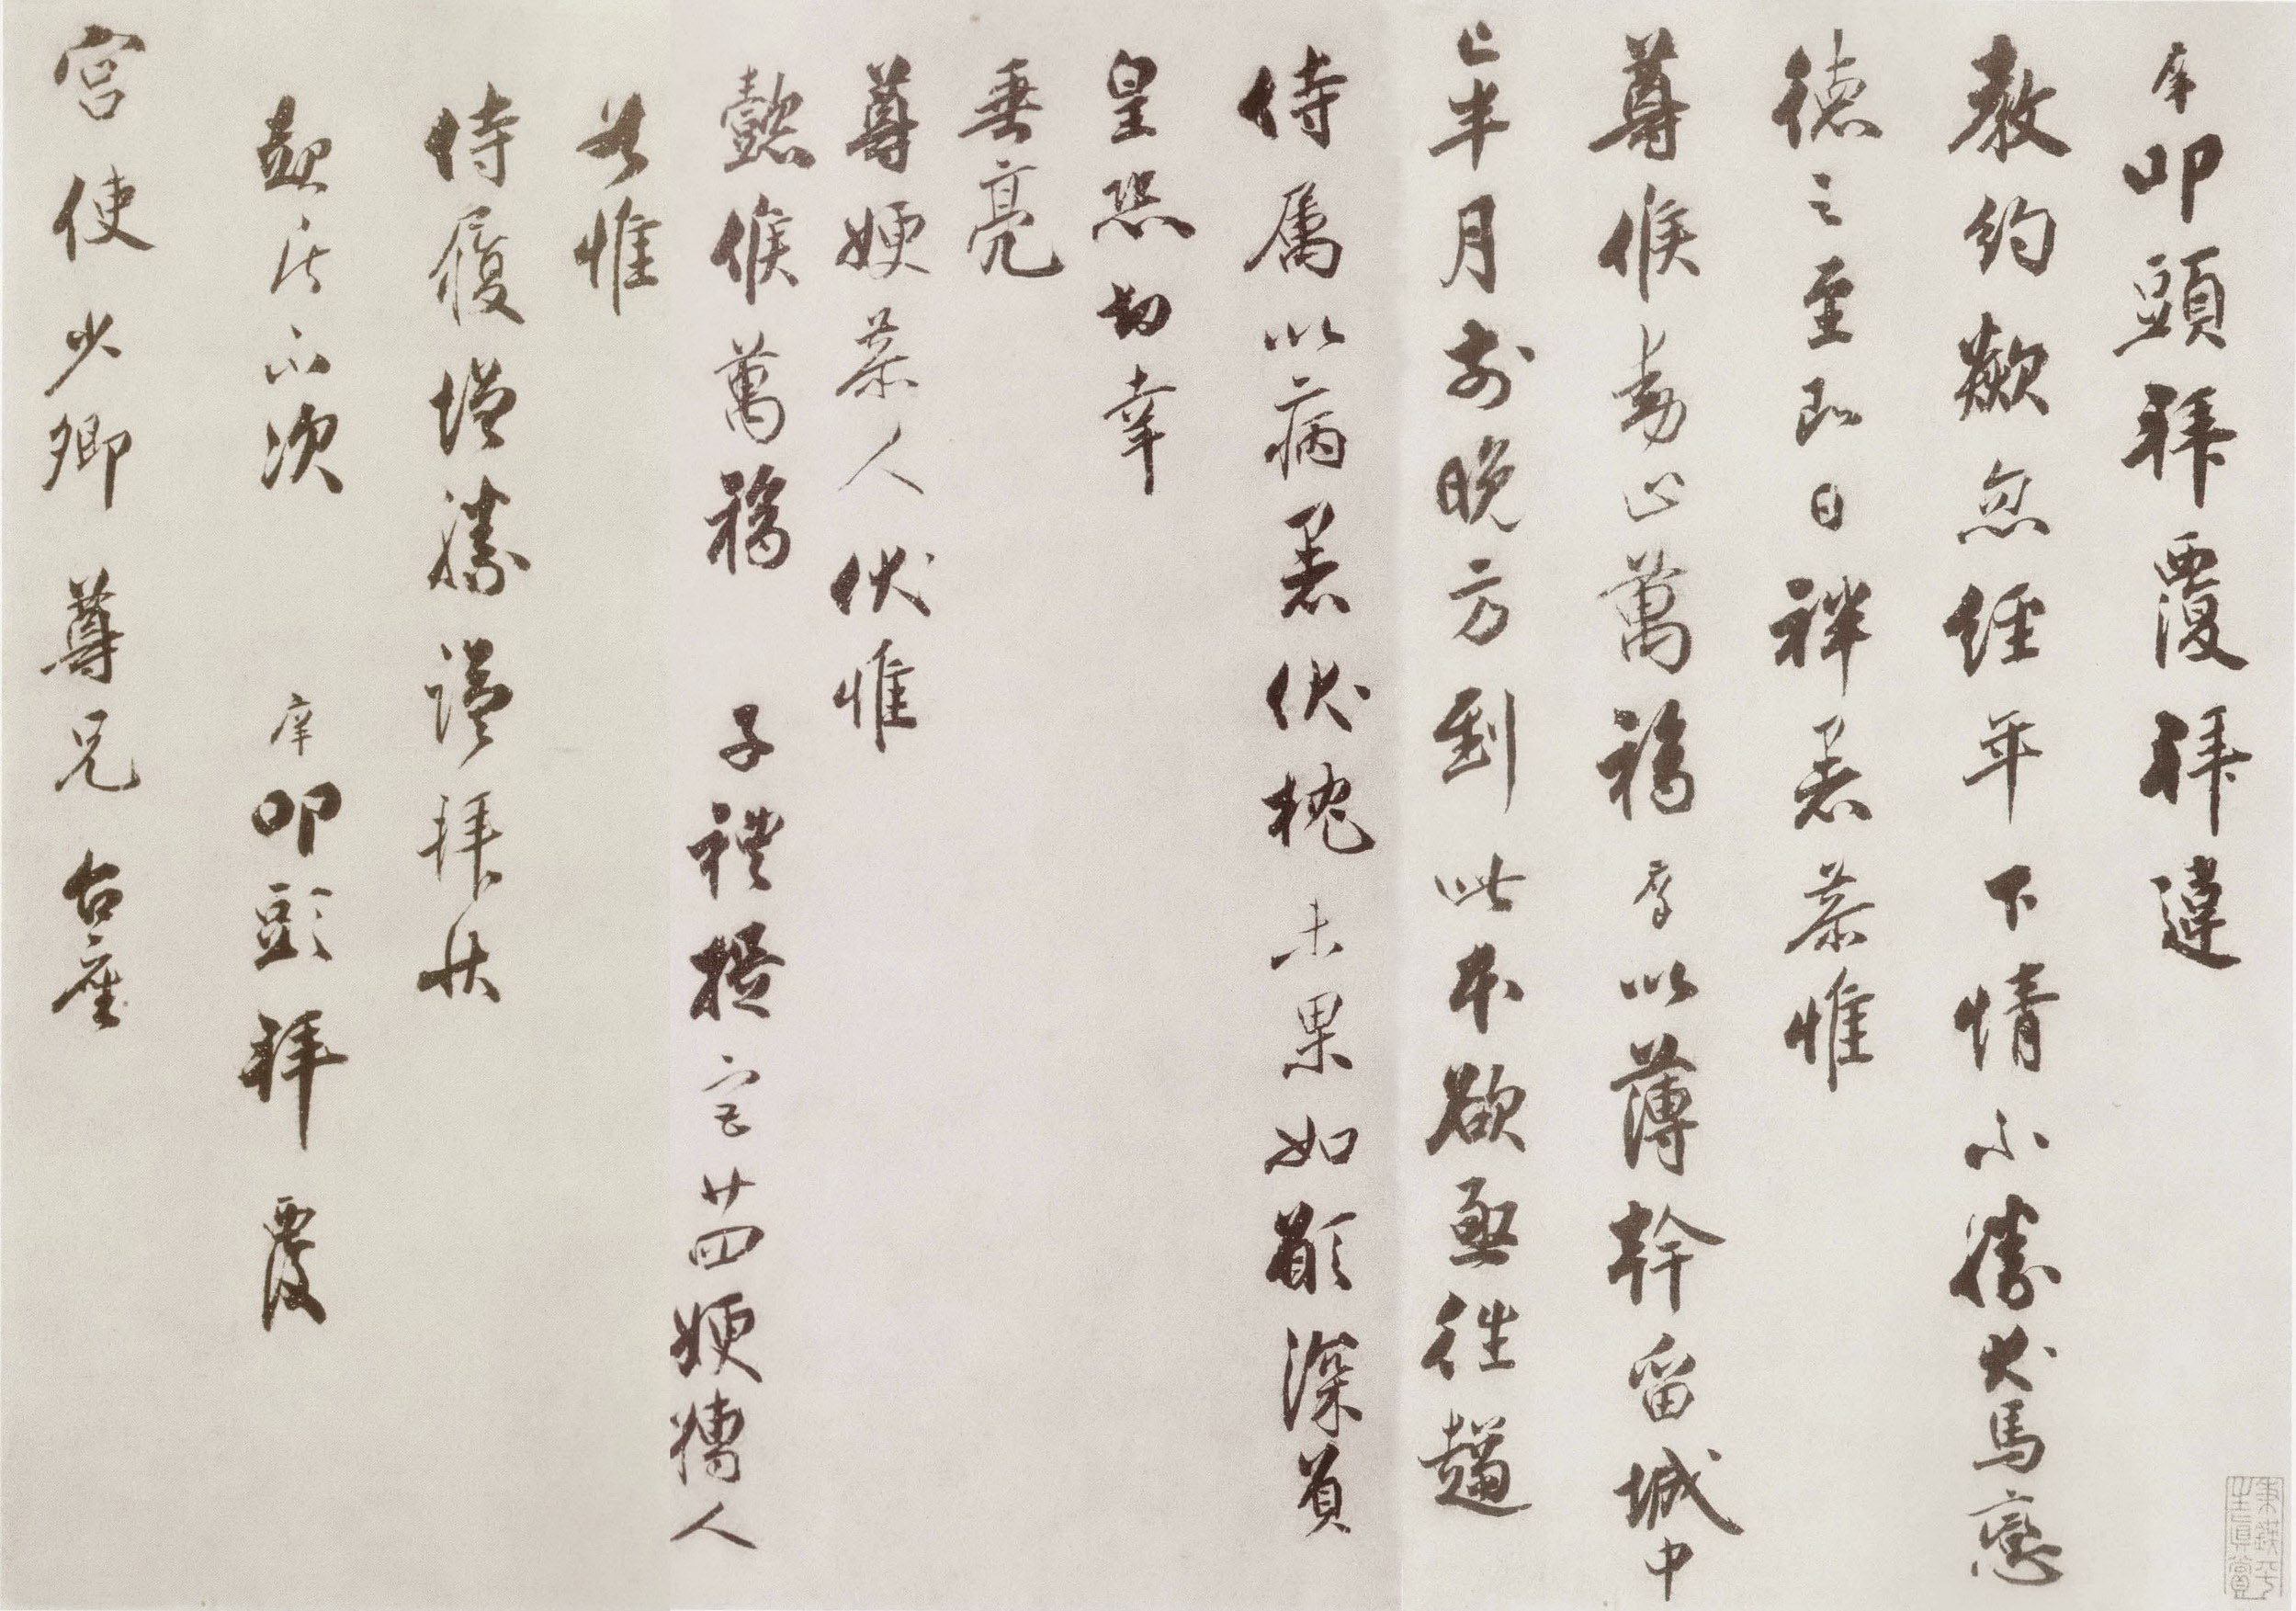 庠叩頭拜覆拜違
教約歘忽經年下情不勝犬馬戀
德之至即日祥暑恭惟
尊候動止萬福庠以薄幹留城中
已半月前晚方到此本欲亟往趨
侍屬以病暑伏枕未果如願深負
皇恐切幸
垂亮
尊嫂恭人伏惟
懿候萬福 子禮提宮廿四嫂孺人
共惟
侍履增勝謹拜狀
起居不次 庠叩頭拜覆
宮使少卿尊兄台座